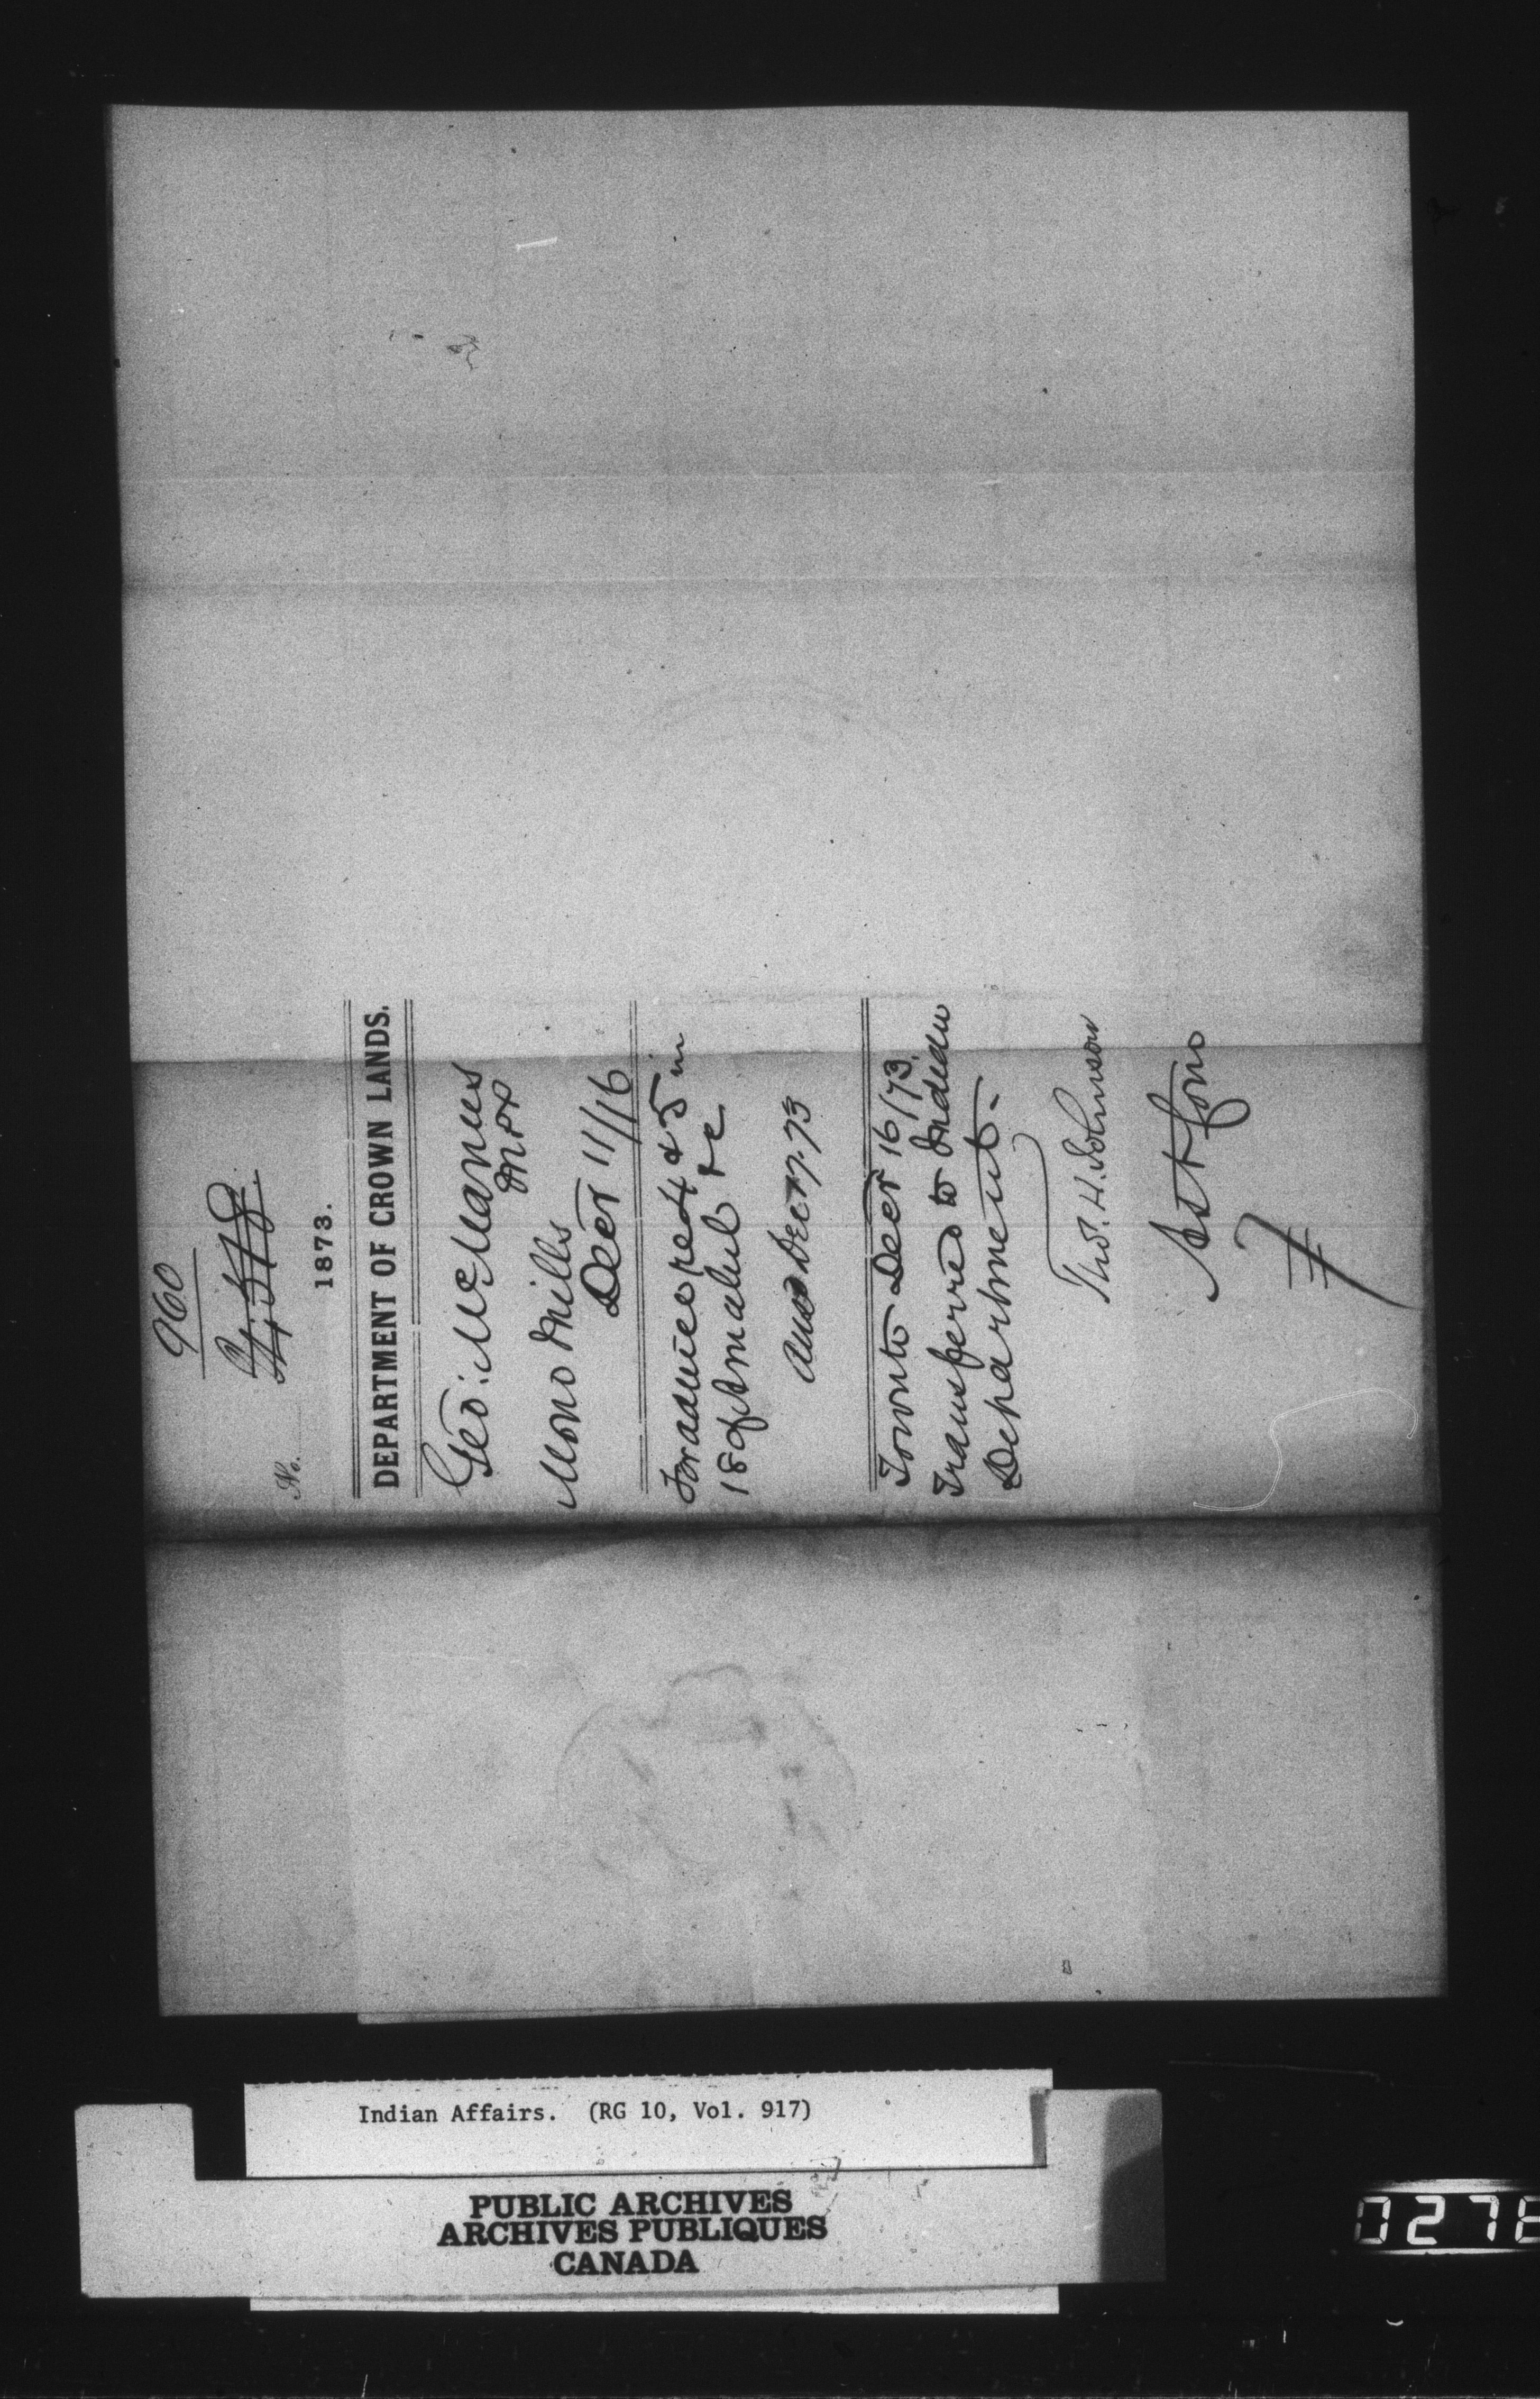 960
No.
1873.
DEPARTMENT OF CROWN LANDS.
Geo: McManus
Mono Mills
Decr 11/16
For advice re 4 & 5 in
18 of Amabel &c
Ansd Dec 17. 73
Toronto Decr 16/73.
Transferred to Indian
Department.
Thos. H. Johnson
Asst Com
Indian Affairs. (RG 10, Vol. 917)
PUBLIC ARCHIVES
ARCHIVES PUBLIQUES
CANADA